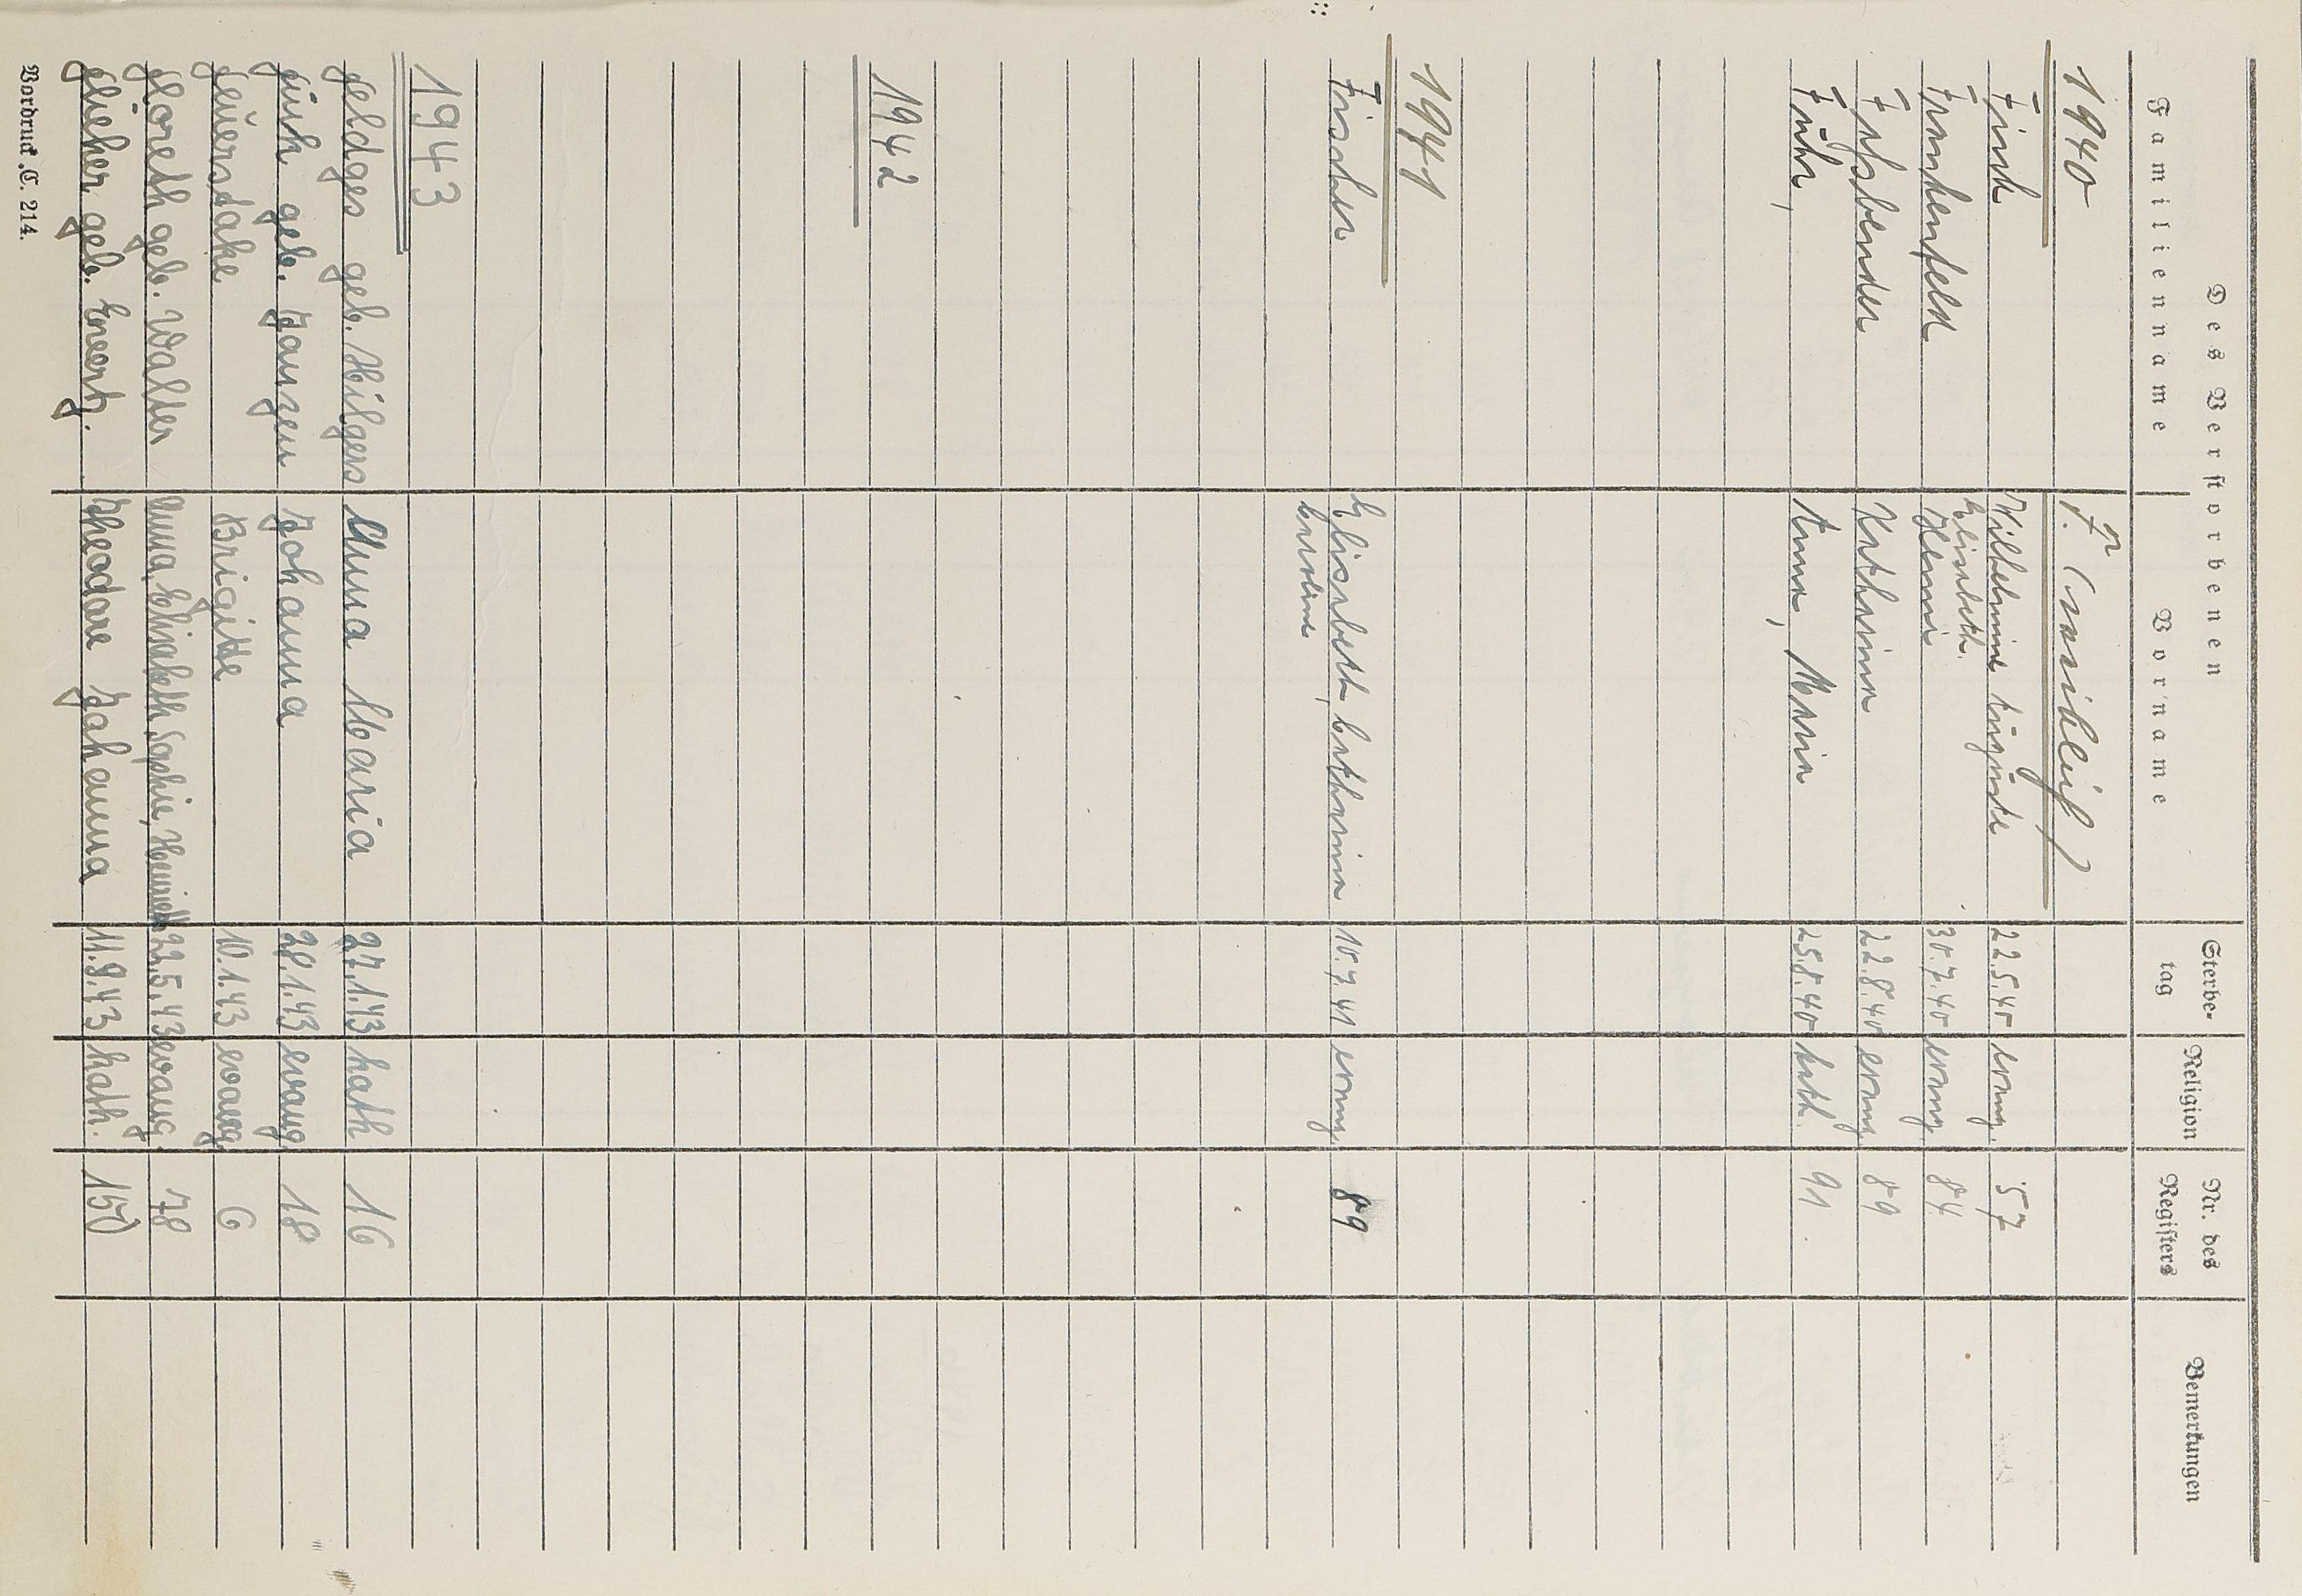 Des Verstorbenen
Familienname Vorname Sterbe-tag Religion Nr. des Registers Bemerkungen
1940 F. (weiblich)
Finck Wilhelmine Kunigunde Elisabeth 22.5.40 evang. 57
Frankenfeld Henni 30.7.40 evang. 84
Faßbender Kathrina 22.8.40 evang. 89
Führ, Anna, Maria 25.8.40 kath. 91.
1941
Fischer Elisabeth, Cathrina Caroline 10.7.41 evang. 89
1942
1943
Feldges geb. Hilgers Anna Maria 27.1.43 kath 16
geb. Janzen Johanna 28.1.43 evang. 18
Feuerstake Brigitte 10.1.43 evang. 6
Floreth geb. Walter Anna, Elisabeth, Sophie, 22.5.43 evang. 78
geb. Theodore Johanna 11.9.43 kath. 150
Vordruck C. 214.